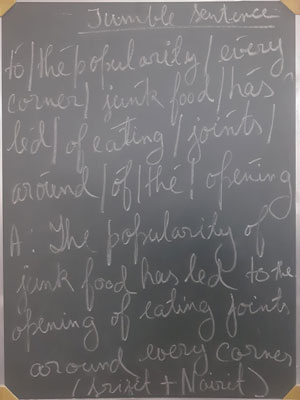 Jumble Sentence
to/the popularity/every
corner/junk food/has
led/of eating/joints/
around/of/the/opening
A: The popularity of
junk food has led to the
opening of eating joints
around every corner
(Srizit + Nairit)